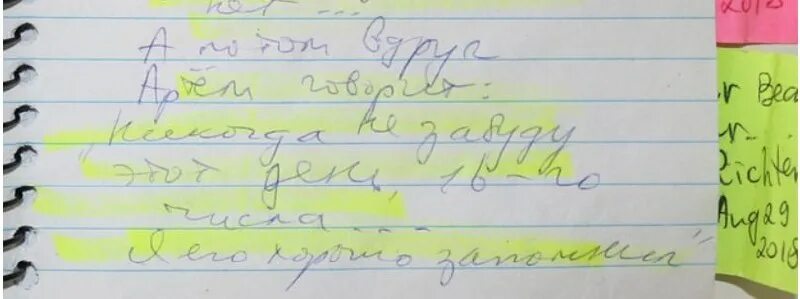 нет...
А потом вдруг
Артём говорит:
„Никогда не забуду
этот день, 16-го
числа....
Я его хорошо запомнил"
2018
r Bea
r.
Richter
Aug 29
2018